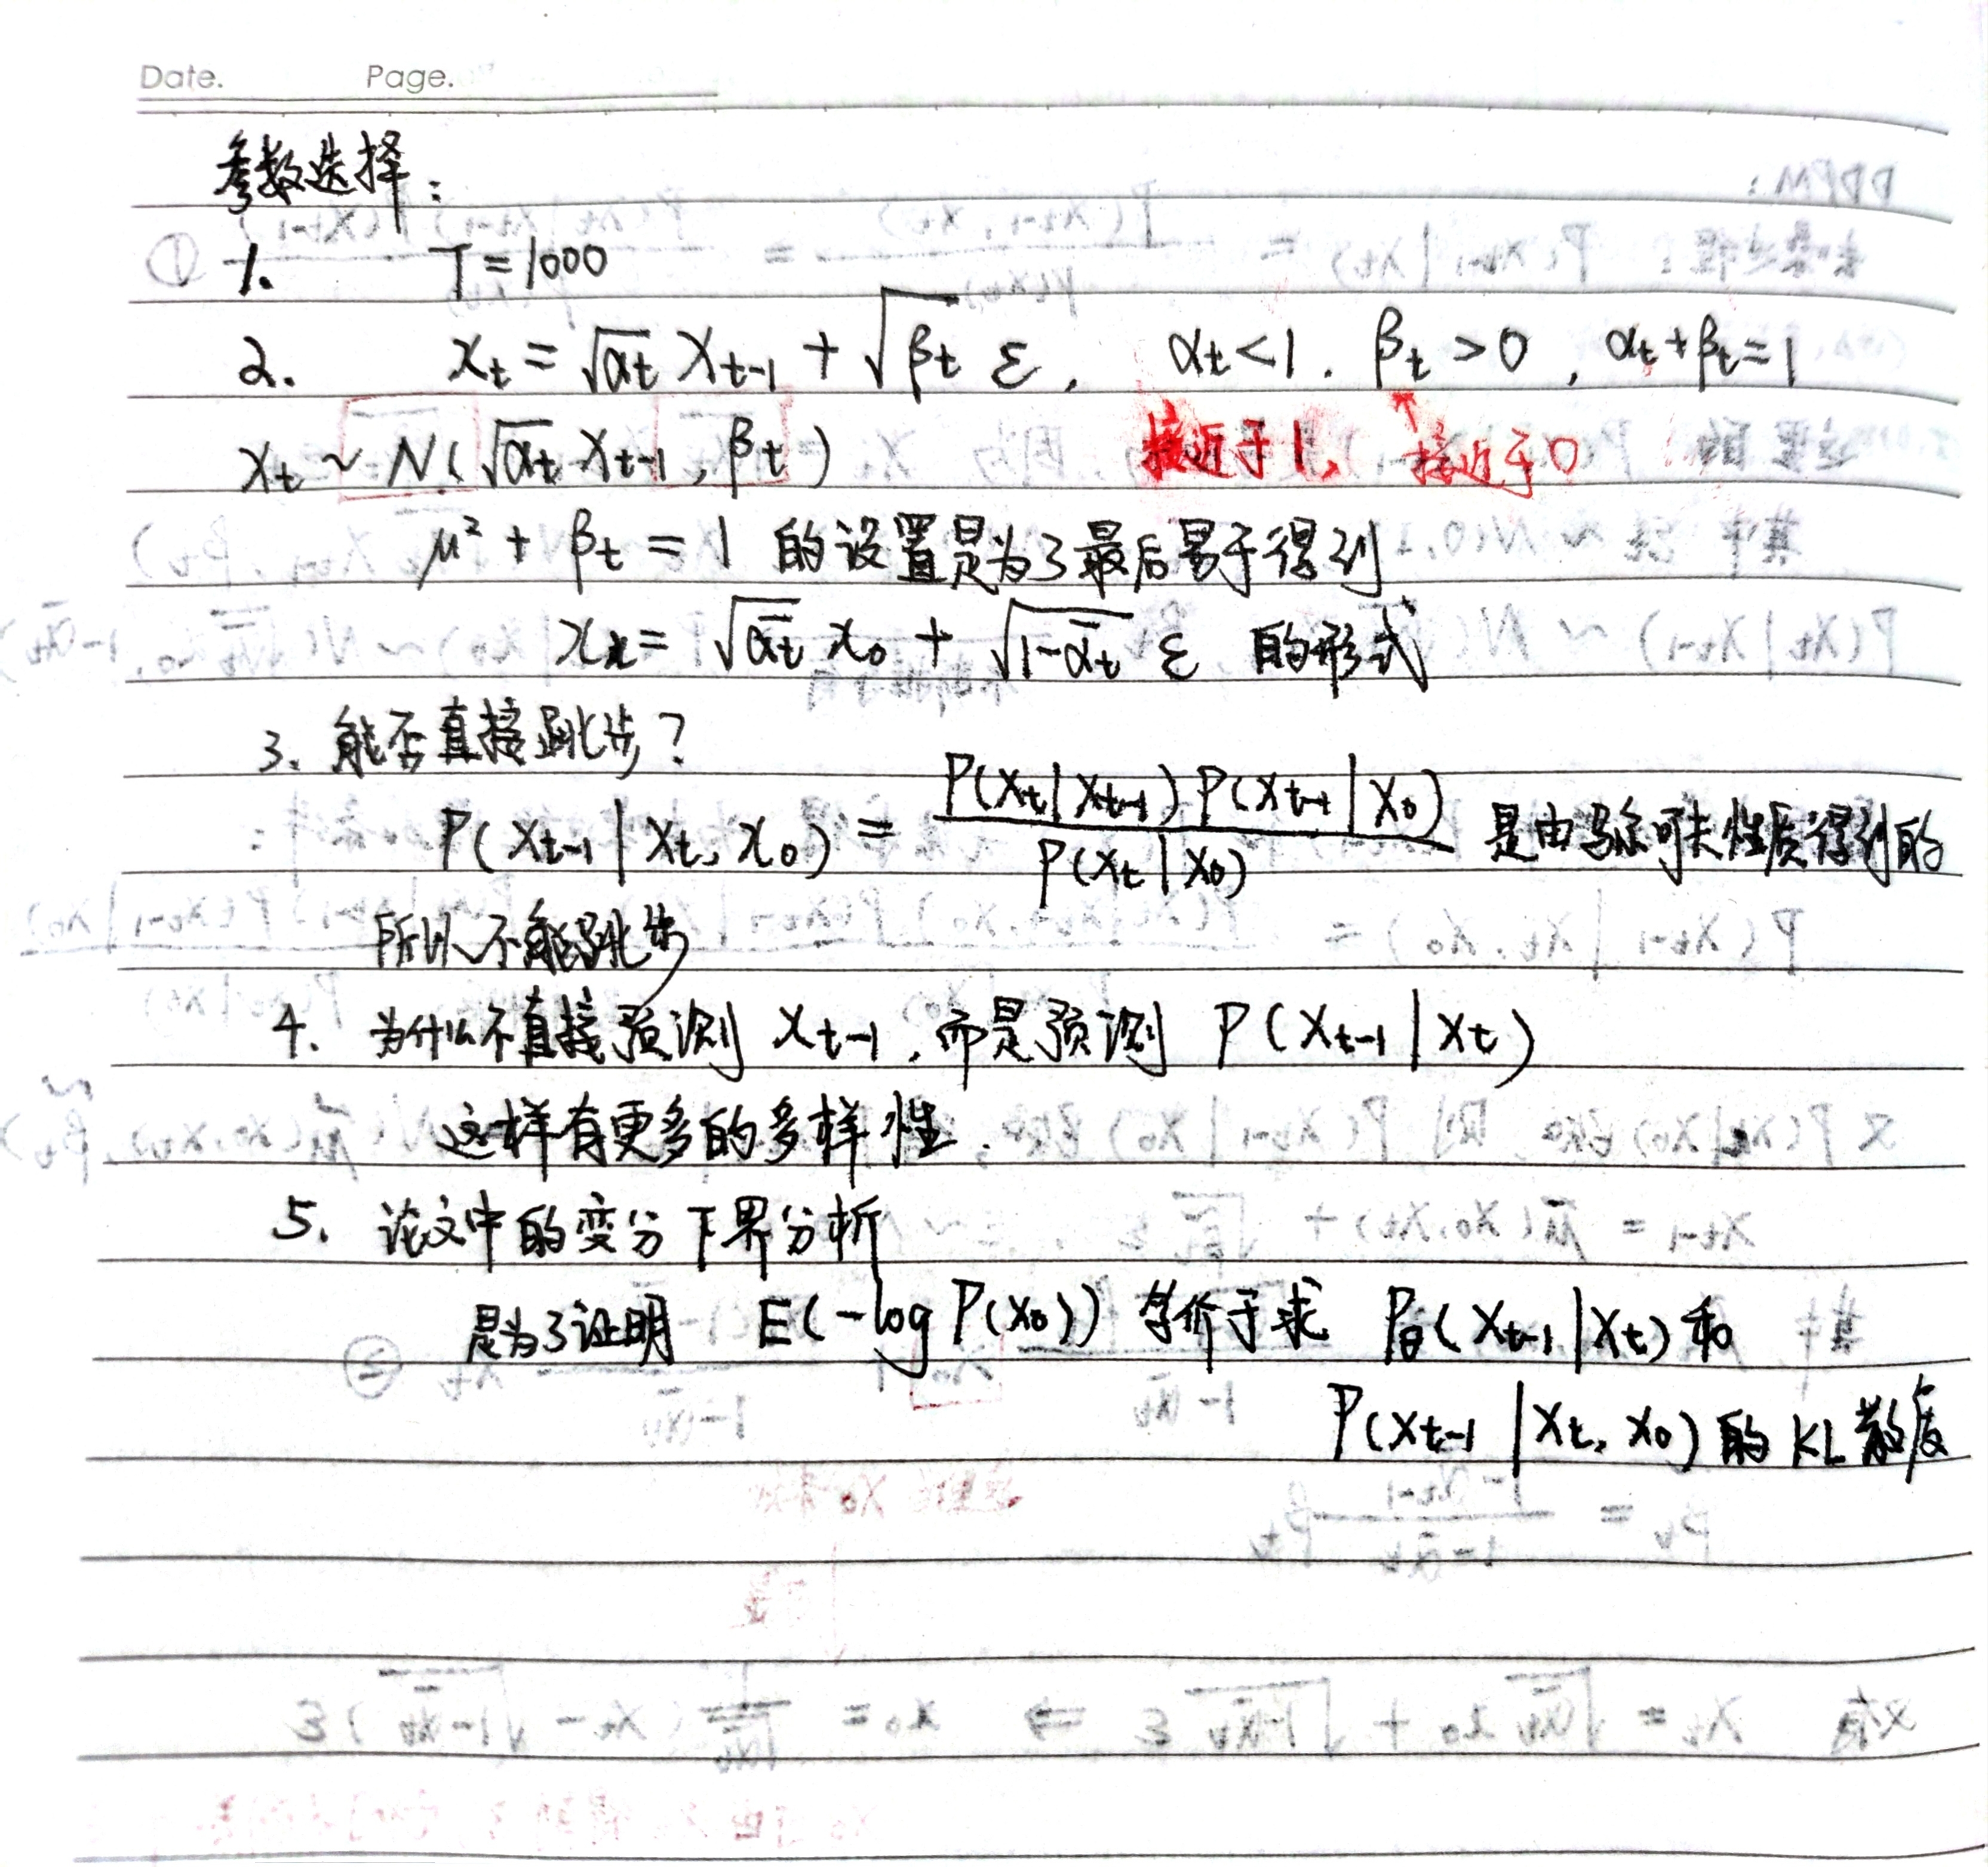 Date. Page.
参数选择:
1. T = 1000
2. x_t = √α_t x_{t-1} + √β_t ε, α_t < 1. β_t > 0, α_t + β_t = 1
接近于1, 接近于0
x_t ~ N(√α_t x_{t-1}, β_t)
μ² + β_t = 1 的设置是为了最后易于得到
x_t = √ᾱ_t x_0 + √1-ᾱ_t ε 的形式
3. 能否直接跳步?
P(x_{t-1} | x_t, x_0) = P(x_t | x_{t-1}) P(x_{t-1} | x_0) / P(x_t | x_0) 是由马尔可夫性质得到的
所以不能跳步
4. 为什么不直接预测 x_{t-1}, 而是预测 P(x_{t-1} | x_t)
这样有更多的多样性.
5. 论文中的变分下界分析
是为了证明 E(-log P(x_0)) 等价于求 P_θ(x_{t-1} | x_t) 和
P(x_{t-1} | x_t, x_0) 的 KL 散度